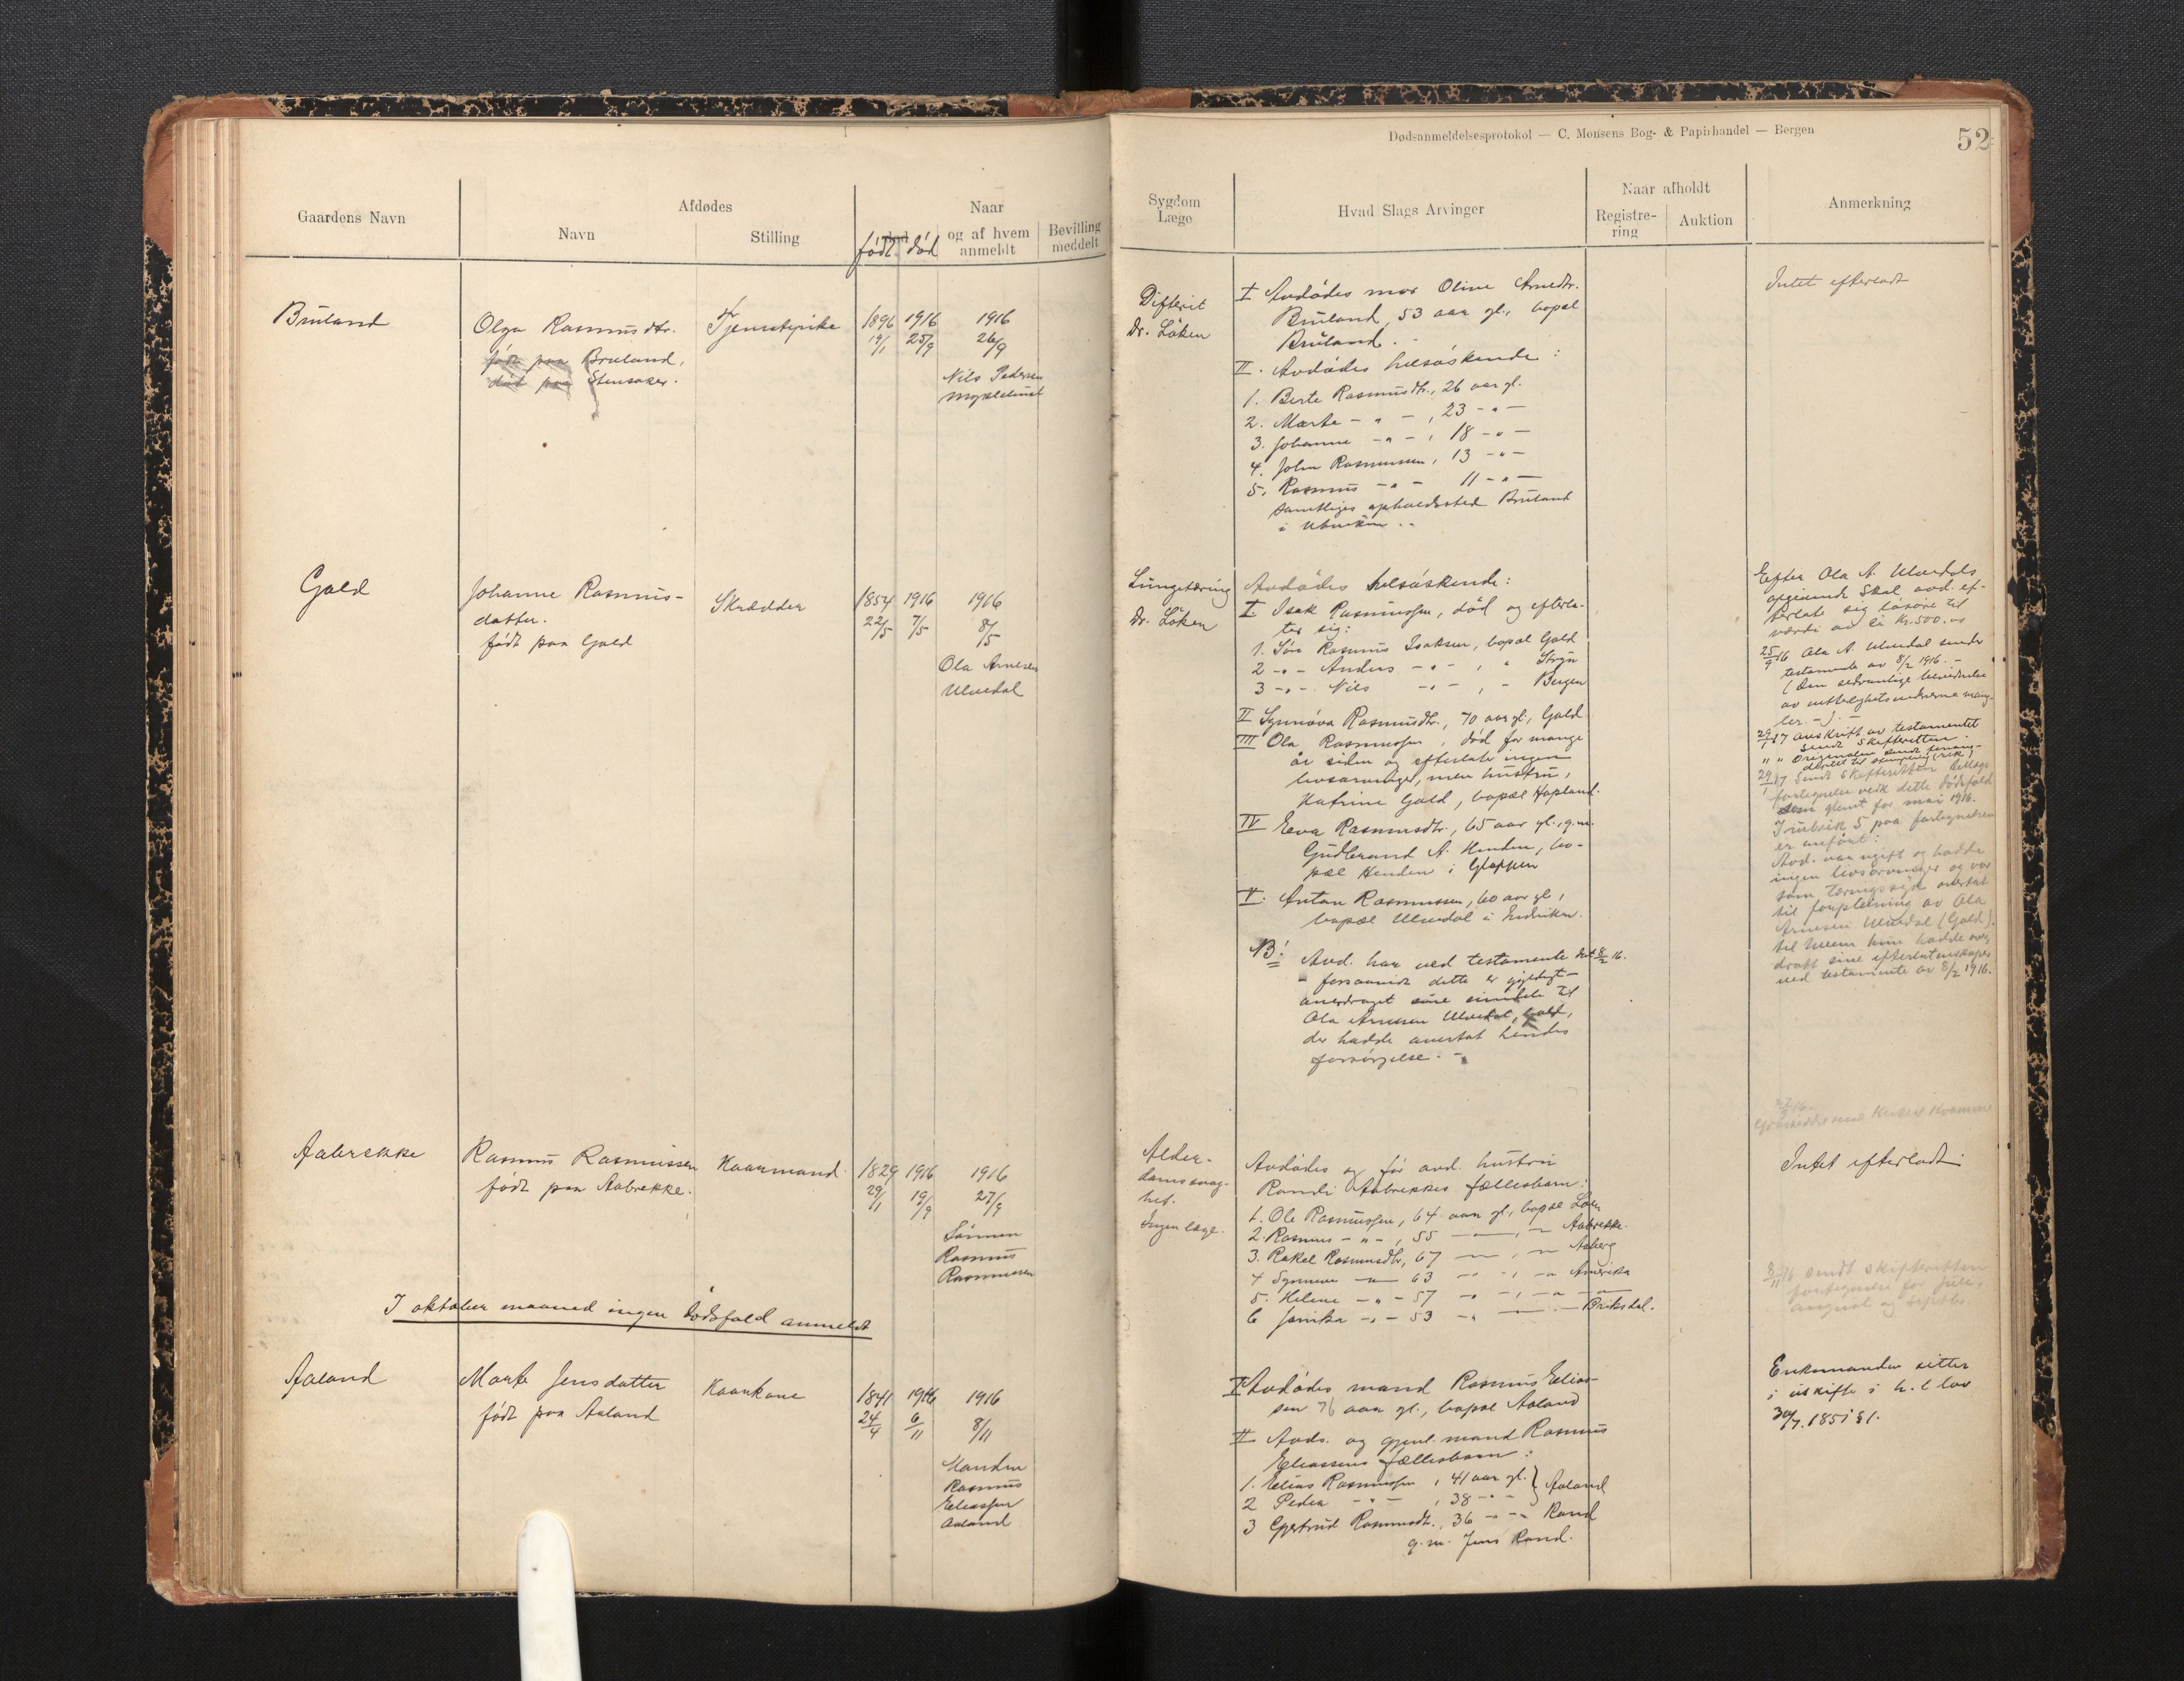 Dødsanmeldelsesprotokol — C. Monsens Bog- & Papirhandel — Bergen
52
Gaardens Navn
Afdødes
Navn
Stilling
født død
Naar
og af hvem
anmeldt
Bevilling
meddelt
Sygdom
Læge
Hvad Slags Arvinger
Naar afholdt
Registre-
ring
Auktion
Anmerkning
Bruland
Olga Rasmusdtr.
født paa Bruland,
død paa Stensaker.
Tjenestepike
1896 1916 1916
25/9 26/9
Nils Pedersen
Myklebust
Difterit
Dr. Löken
I Avdødes mor Oline Arnedtr.
Bruland, 53 aar gl., bopæl
Bruland.
II. Avdødes helsøskende:
1. Berte Rasmusdtr., 26 aar gl.
2. Marte - " - , 23 - " -
3. Johanne - " - , 18 - " -
4. John Rasmussen, 13 - " -
5. Rasmus - " - 11 - " -
samtliges opholdssted Bruland
i
Intet efterladt
Gald
Johanne Rasmus-
datter.
født paa Gald
Skrædder
1854 1916 1916
22/5 7/5 8/5
Ola Arnesen
Ulvedal
Lungetæring
Dr. Löken
Avdødes helsøskende:
I. Isak Rasmussen, død og efterla-
ter sig:
1. Søn Rasmus Isaksen, bopæl Gald
2 - " - Anders - " - , " Stryn
3 - " - Nils - " - , - Bergen
II Synnøva Rasmusdtr., 70 aar gl., Gald
III Ola Rasmussen, død for mange
år siden og efterlate ingen
livsarvinger, men hustru,
Katrine Gald, bopæl Hopland.
IV Eva Rasmusdtr., 65 aar gl., g.m.
Gudbrand A. Henden, bo-
pæl Henden i Gloppen
V. Anton Rasmussen, 60 aar gl.,
bopæl Ulvedal i Indviken.
NB! Avd. har ved testamente dat 8/2 16.
- forsaavidt dette er gyldigt -
overdraget sine eiendele til
Ola Arnesen Ulvedal, Gald,
der hadde overtat hendes
forsørgelse. -
Efter Ola A. Ulvedals
opgivende skal avd. ef-
terlate sig løsøre til
værdi av ca kr. 500.
25/9 16 Ola A. Ulvedal sender
testamente av 8/2 1916. -
(Den sedvanlige bevidnelse
av vitterlighetsvidnerne mang-
ler. -). -
29/1 17 avskrift av testamentet
sendt skifteretten.
" " Originalen sendt
29/1 17 Sendt skifteretten
fortegnelse vedk dette dødsfald
som glemt for mai 1916.
I rubrik 5 paa fortegnelsen
er anført:
Avd. var ugift og hadde
ingen livsarvinger og var
som tæringssyk overtat
til forpleining av Ola
Arnesen Ulvedal (Gald),
til hvem hun hadde over-
dratt sine efterlatenskaper
ved testamente av 8/2 1916.
Aabrekke
Rasmus Rasmussen
født paa Aabrekke.
Kaarmand.
1829 1916 1916
29/1 19/9 27/9
Sønnen
Rasmus
Rasmussen
Alder-
domssvag-
het.
Ingen læge.
Avdødes og før avd. hustru
Randi Aabrekkes fællesbarn:
1. Ole Rasmussen, 64 aar gl., bopæl Loen
2. Rasmus - " - , 55 - " - , - " Aabrekke.
3. Rakel Rasmusdtr, 67 - " - , - " Aaberg
4 Synneve - " - 63 - " - , - " Amerika
5. Helene - " - 57 - " - , - " - " -
6 Janika - " - 53 - " - Briksdal.
Intet efterladt
8/11 16 sendt skifteretten
fortegnelse for juli,
august og septbr.
I oktober maaned ingen dødsfald anmeldt
Aaland
Marte Jensdatter
født paa Aaland
Kaarkone
1841 1916 1916
24/4 6/11 8/11
Manden
Rasmus
Eliassen
Aaland
I Avdødes mand Rasmus Elias-
sen 76 aar gl., bopæl Aaland
II Avds. og gjenl. mand Rasmus
Eliassens fællesbarn:
1. Elias Rasmussen, 41 aar gl. } Aaland
2 Peder - " - , 38 - " -
3 Gjertrud Rasmusdtr., 36 - " - Rand
g.m. Jens Rand.
Enkemanden sitter
i uskifte i h. t lov
30/7. 1851 § 1.